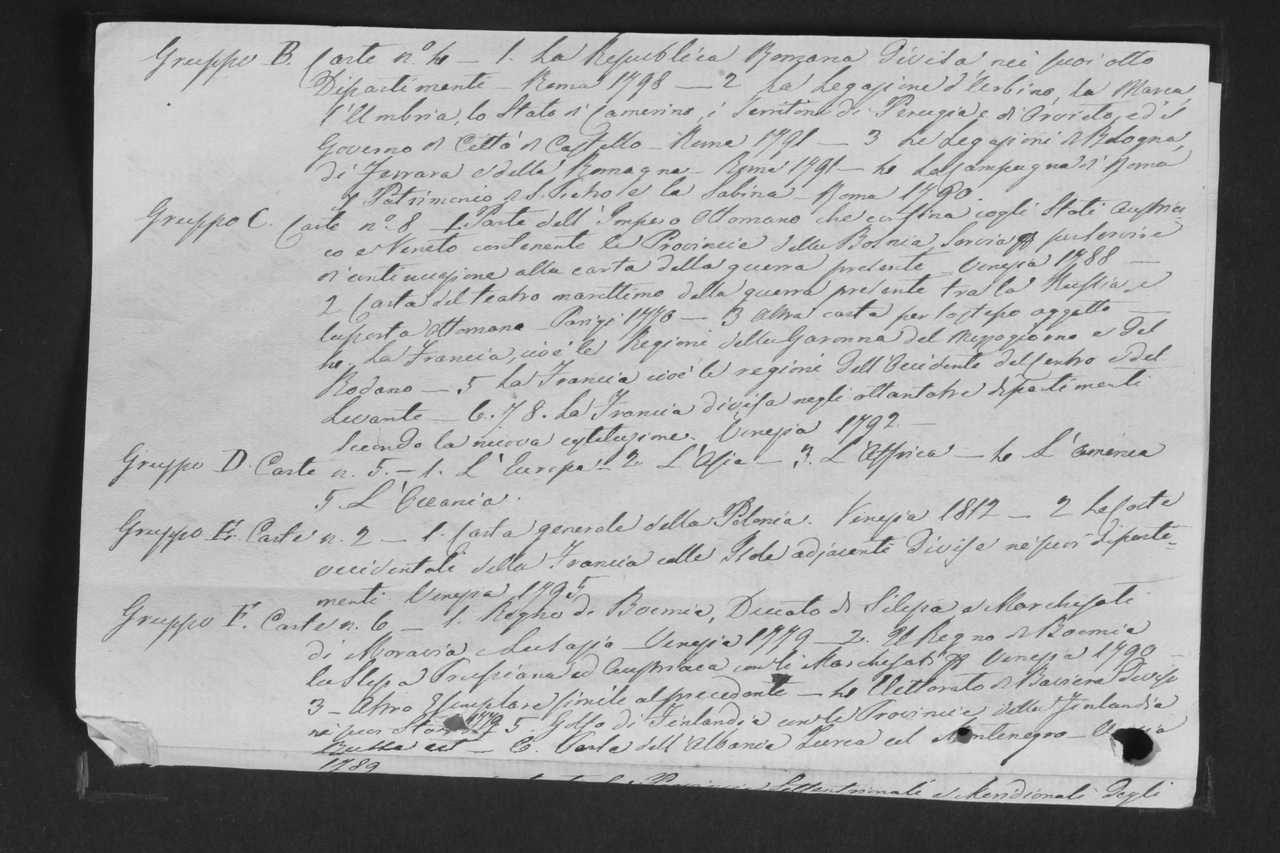 Gruppo B. Carte n.º 4 — 1. La Republica Romana divisa nei suoi otto
Dipartimente — Roma 1798 — 2 La Legazione d'Urbino, la Marca,
l'Umbria, lo Stato di Camerino, i Territori di Perugia e di Orvieto, ed il
Governo di Città di Castello — Roma 1791 — 3 Le Legazioni di Bologna,
di Ferrara e della Romagna — Roma 1791 — 4 La Campagna di Roma
Il Patrimonio di S. Pietro e la Sabina — Roma 1790
Gruppo C. Carte n.º 8 — 1. Parte dell'Impero Ottomano che confina cogli Stati Austria-
co e Veneto contenente le Provincie della Bosnia, Servia per servire
di continuazione alla carta della guerra presente — Venezia 1788 —
2 Carta del teatro marittimo della guerra presente tra la Russia, e
la porta Ottomana — Parigi 1770 — 3 Altra carta per lo stesso oggetto —
4. La Francia, cioè le Regioni della Garonna del Mezzogiorno e del
Rodano — 5 La Francia cioè le regioni dell'Occidente del Centro e del
Levante — 6. 7 8. La Francia divisa negli ottantatre dipartimenti
secondo la nuova costituzione. Venezia 1792 —
Gruppo D. Carte n. 5. — 1. L'Europa — 2. L'Asia — 3. L'Affrica — 4 L'America
5. L'Oceania.
Gruppo E. Carte n. 2 — 1. Carta generale della Polonia. Venezia 1812 — 2 La parte
occidentale della Francia colle Isole adjacenti divisa ne' suoi diparti=
menti Venezia 1795
Gruppo F. Carte n. 6 — 1. Regno di Boemia, Ducato di Silesia e Marchesati
di Moravia e Lusazia — Venezia 1779 — 2. Il Regno di Boemia
la Slesia Prussiana ed Austriaca con li Marchesati Venezia 1790 —
3 — Altro Esemplare simile al precedente — 4 Elettorato di Baviera diviso
ne' suoi Stati 1779 5 Golfo di Finlandia con le Provincie della Finlandia
Russa ect — 6. Carta dell'Albania Turca ed Montenegro — Venezia
1789
Settentrionali e Meridionali degli